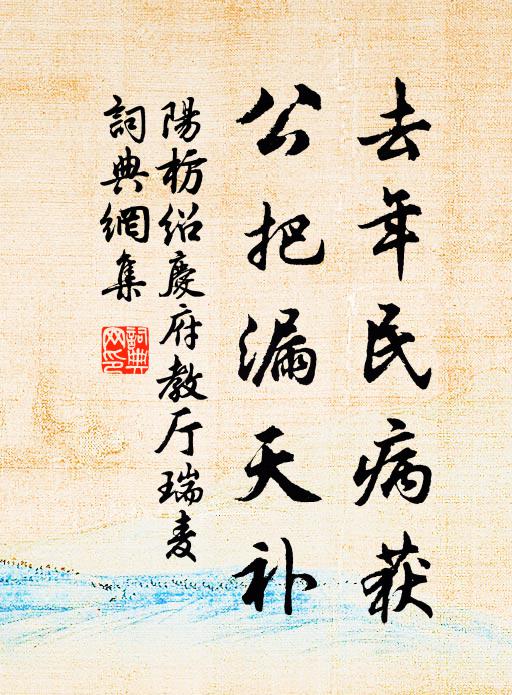 去年民病获
公把漏天补
陽枋绍慶府教厅瑞麦
詞典網集